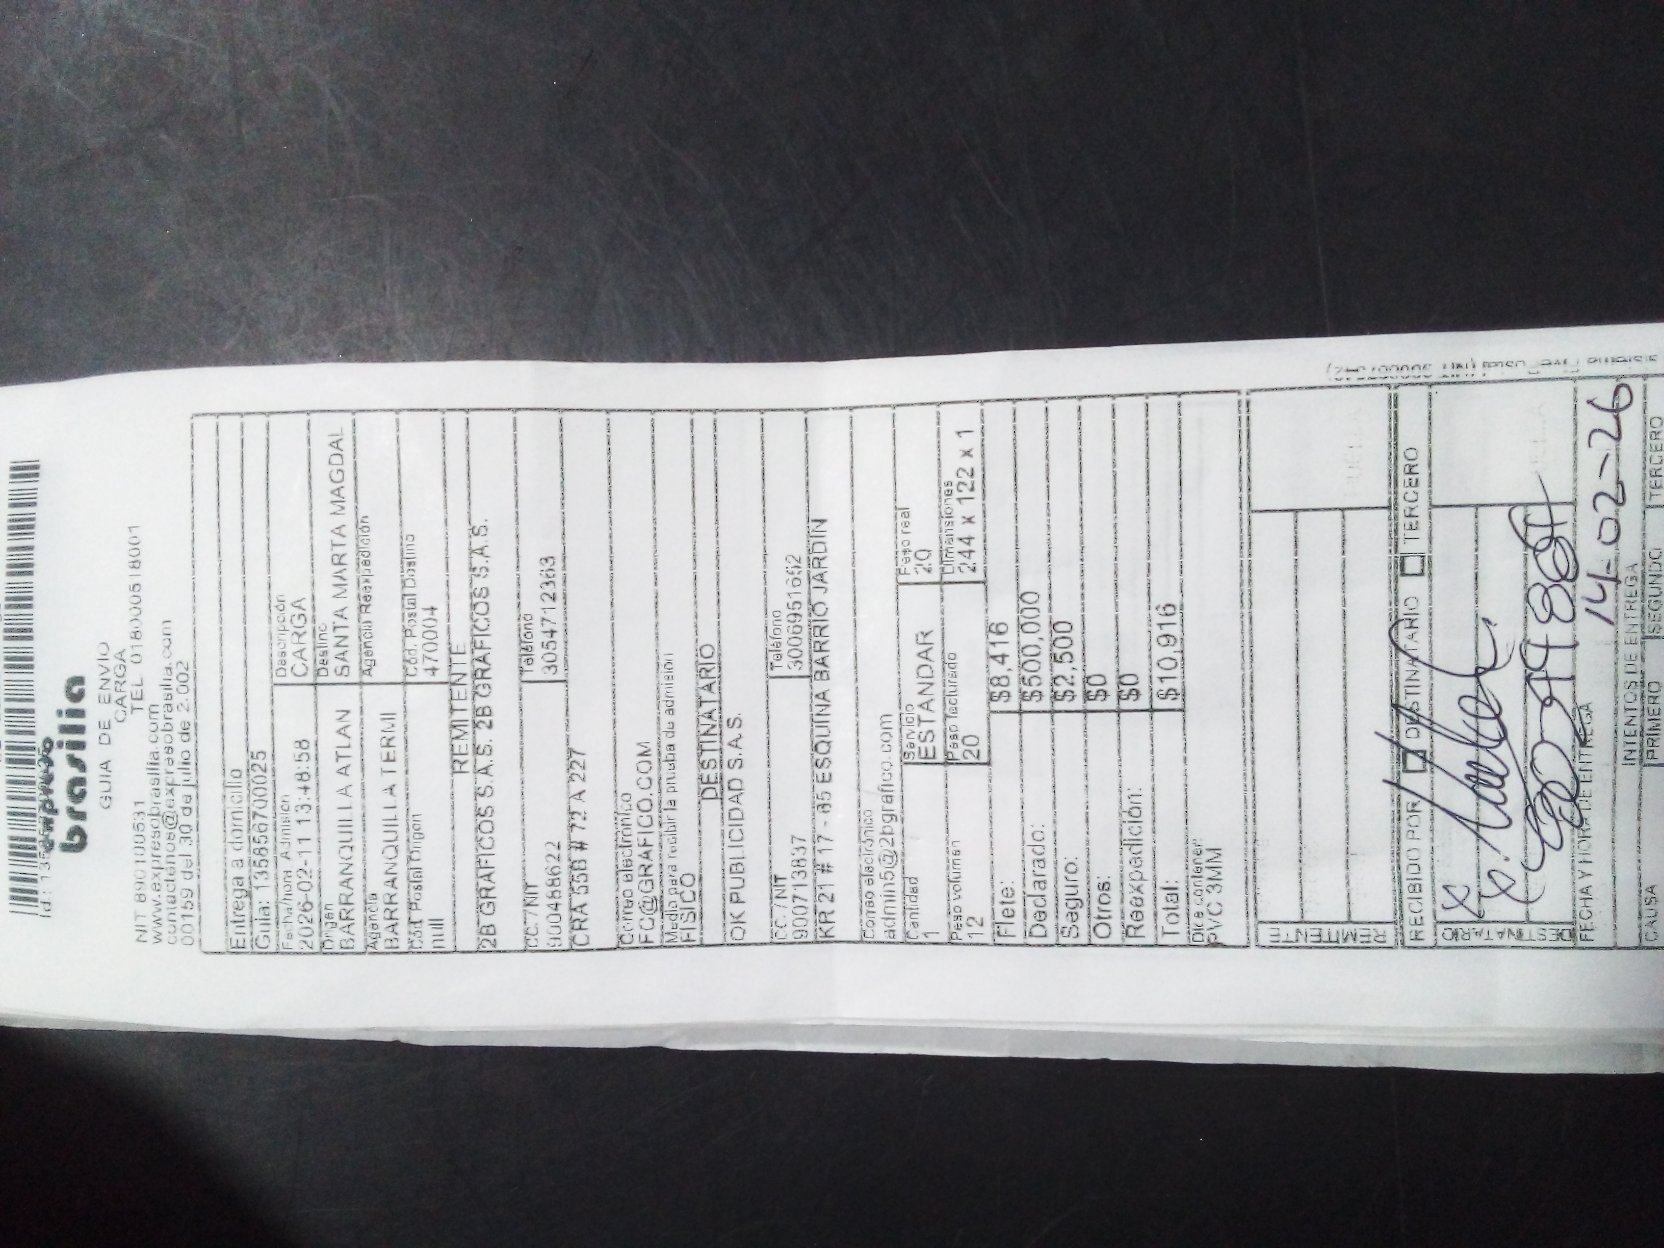 expreso
brasilia
GUIA DE ENVIO
CARGA
NIT 890100531 TEL 018000518001
www.expresobrasilia.com
contactenos@expresobrasilia.com
00159 del 30 de julio de 2.002
Entrega a domicilio
Guía: 135856700025
Fecha/hora Admisión Descripción
2026-02-11 13:48:58 CARGA
Origen Destino
BARRANQUILLA ATLAN SANTA MARTA MAGDAL
Agencia Agencia Reexpedición
BARRANQUILLA TERMI
Cód. Postal Origen Cód. Postal Destino
null 470004
REMITENTE
2B GRAFICOS S.A.S. 2B GRAFICOS S.A.S.
CC./NIT Teléfono
900488622 3054712363
CRA 55B # 72 A 227
Correo electrónico
FC@GRAFICO.COM
Medio para recibir la prueba de admisión
FISICO
DESTINATARIO
OK PUBLICIDAD S.A.S.
CC. / NIT Teléfono
900713837 3006951652
KR 21 # 17 - 85 ESQUINA BARRIO JARDIN
Correo electrónico
admin5@2bgrafico.com
Cantidad Servicio Peso real
1 ESTANDAR 20
Peso volumen Peso facturado Dimensiones
12 20 244 x 122 x 1
Flete: $8,416
Declarado: $500,000
Seguro: $2,500
Otros: $0
Reexpedición: $0
Total: $10,916
Dice contener:
PVC 3MM
REMITENTE
RECIBIDO POR DESTINATARIO TERCERO
DESTINATARIO
FECHA Y HORA DE ENTREGA 14-02-26
INTENTOS DE ENTREGA
CAUSA PRIMERO SEGUNDO TERCERO